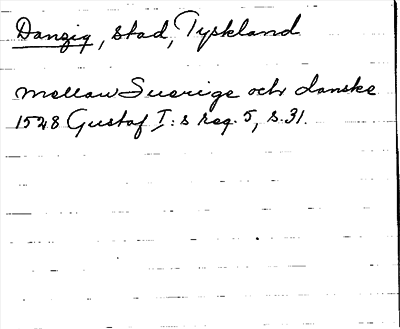 Danzig, stad, Tyskland
mellan Sverige och danske
1528 Gustaf I:s reg. 5, s. 31.